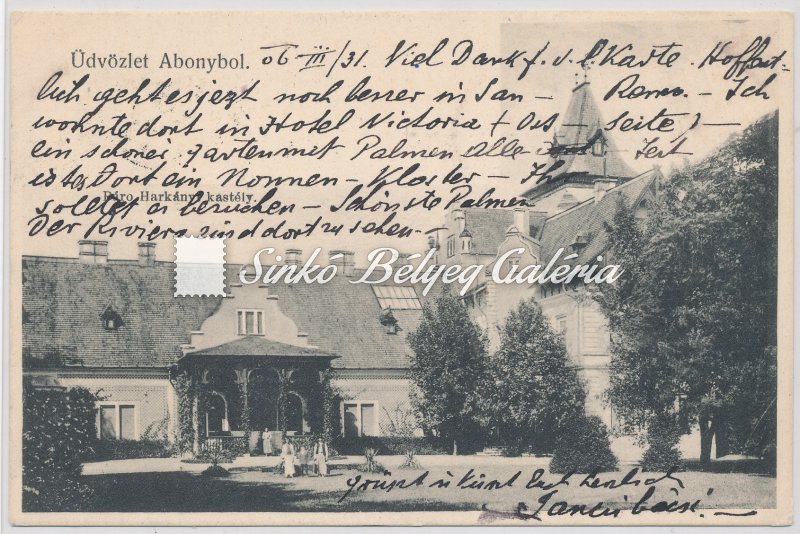 Üdvözlet Abonyból. 06 III/31. Viel Dank f. d. l. Karte. Hoffent-
lich geht es jezt noch besser in San- Remo. - Ich
wohnte dort in Hotel Victoria (Ost seite) -
ein schöner garten mit Palmen Alle - Jezt
ist dort ein Nonnen-Kloster - Ihr
Báró Harkányi kastély.
solltet es besuchen - Schönste Palmen
Der Riviera sind dort zu sehen. -
Sinkó Bélyeg Galéria
grüsst u küsst Euch herzlich
Jancsi bácsi. -